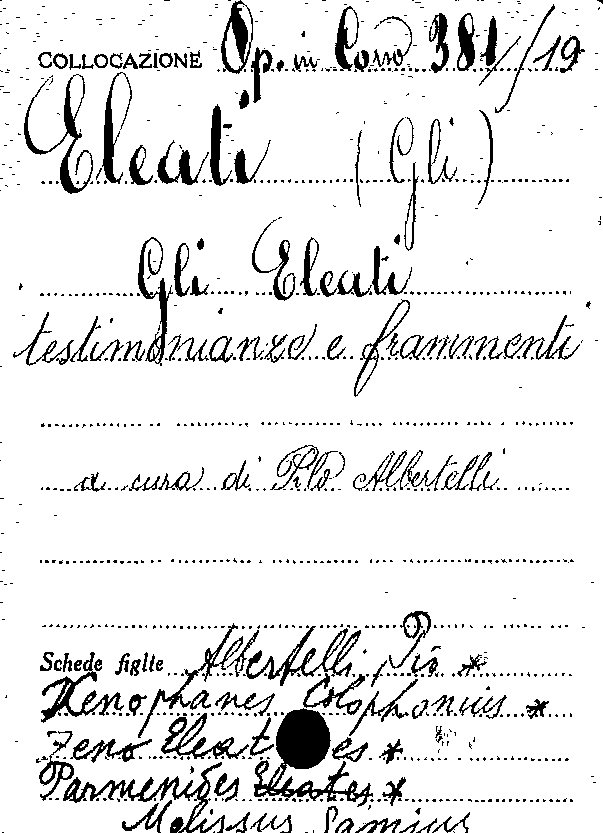 COLLOCAZIONE Op. in Corso 381/19
Eleati (Gli)
Gli Eleati
testimonianze e frammenti
a cura di Pilo Albertelli
Schede figlie Albertelli, Pio *
Xenophanes Colophonius *
Zeno Eleat es *
Parmenides Eleates *
Melissus Samius